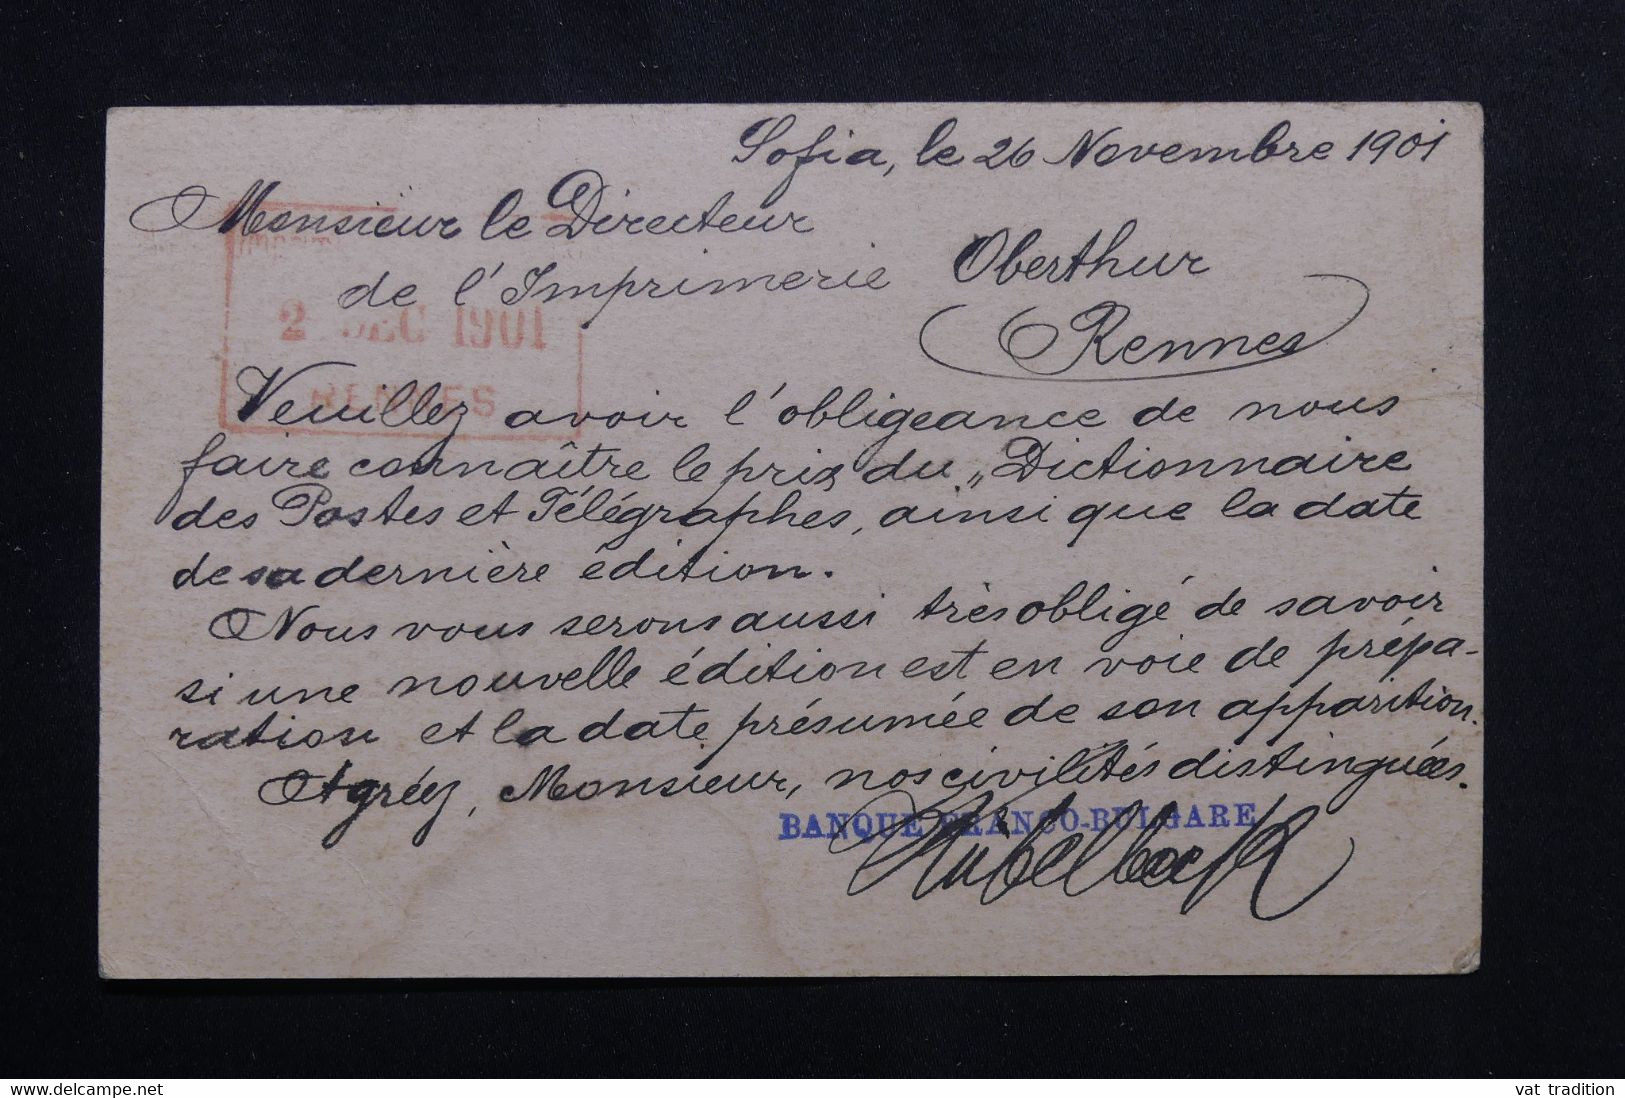 Sofia, le 26 Novembre 1901
Monsieur le Directeur
de l'Imprimerie Oberthur
Rennes
2 DEC 1901
RENNES
Veuillez avoir l'obligeance de nous
faire connaître le prix du „Dictionnaire
des Postes et Télégraphes, ainsi que la date
de sa dernière édition.
Nous vous serons aussi très obligé de savoir
si une nouvelle édition est en voie de prépa-
ration et la date présumée de son apparition.
Agréez, Monsieur, nos civilités distinguées.
BANQUE FRANCO-BULGARE
www.delcampe.net
vat tradition